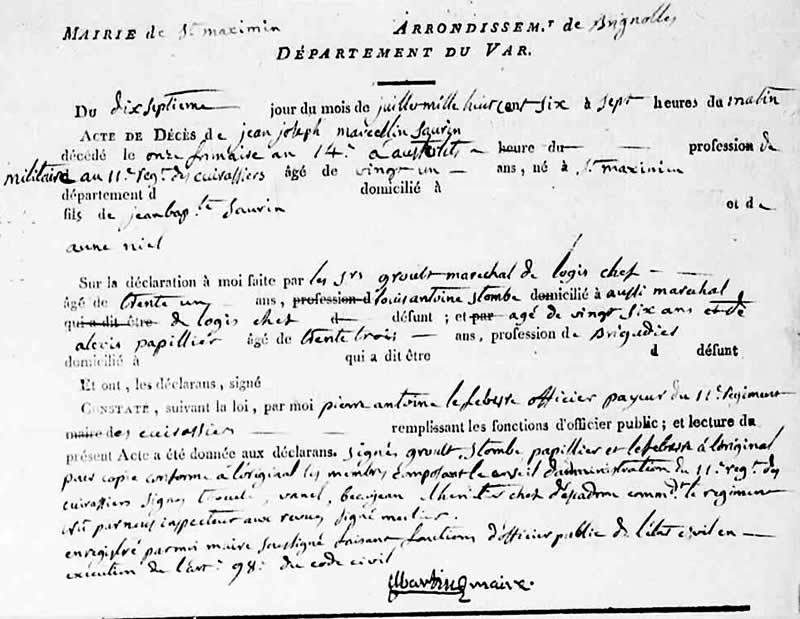 MAIRIE de St maximin ARRONDISSEM.T de Brignolles
DÉPARTEMENT DU VAR.
Du dix septieme jour du mois de juillet mille huit cent six à sept heures du matin
ACTE DE DÉCÈS de jean joseph marcellin Saurin
décédé le onze frimaire an 14.e a austerlits heure du profession de
militaire au 11.e reg.t des cuirassiers âgé de vingt un ans, né à St. maximin
département d domicilié à
fils de jean bap.te Saurin et de
anne niel
Sur la déclaration à moi faite par les srs groult marechal de logis chef
âgé de trente un ans, profession d louis antoine stombe domicilié à aussi marechal
qui a dit être de logis chef d défunt ; et par agé de vingt six ans et de
alexis papillier âgé de trente trois ans, profession de Brigadier
domicilié à qui a dit être d défunt
Et ont, les déclarans, signé
CONSTATÉ, suivant la loi, par moi pierre antoine lefebvre officier payeur du 11.e regiment
maire des cuirassiers remplissant les fonctions d'officier public ; et lecture du
présent Acte a été donnée aux déclarans. signés groult, stombe, papillier et lefebvre à l'original
pour copie conforme à l'original les membres composant le conseil d'administration du 11.e reg.t des
cuirassiers signés vanel, beaujean chef d'escadron comm.dt le regiment
vu par nous inspecteur aux revues signé
enregistré par moi maire soussigné faisant fonctions d'officier public de l'état civil en
execution de l'art. 98. du code civil
maire.